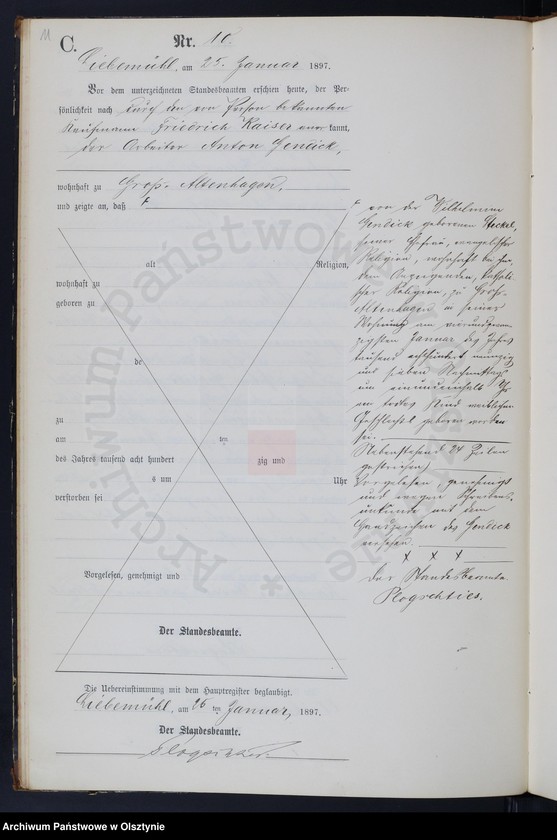 11
C.
Nr. 10.
Liebemühl, am 25. Januar 1897.
Vor dem unterzeichneten Standesbeamten erschien heute, der Per-
sönlichkeit nach durch den von Person bekannten
Kaufmann Friedrich Kaiser anerkannt,
der Arbeiter Anton Gendick,
wohnhaft zu Groß-Altenhagen,
und zeigte an, daß
alt Religion,
wohnhaft zu
geboren zu
de
zu
am ten
des Jahres tausend acht hundert zig und
s um Uhr
verstorben sei
Vorgelesen, genehmigt und
Der Standesbeamte.
Die Uebereinstimmung mit dem Hauptregister beglaubigt.
Liebemühl, am 26 ten Januar, 1897.
Der Standesbeamte.
von der Wilhelmine
Gendick geborenen
seiner Ehefrau, evangelischer
Religion, wohnhaft bei ihm,
dem Anzeigenden, katholi-
scher Religion, zu Groß-
Altenhagen in seiner
Wohnung am vierundzwan-
zigsten Januar des Jahres
tausend achthundert neunzig
und sieben Nachmittags
um Uhr
ein todtes Kind weiblichen
Geschlecht geboren worden
sei.
Nebenstehend 24 Zeilen
gestrichen
Vorgelesen, genehmigt
und wegen Schreibens-
unkunde mit dem
Handzeichen des Gendick
versehen.
x x x
Der Standesbeamte
Archiwum Państwowe w Olsztynie
Archiwum Państwowe w Olsztynie